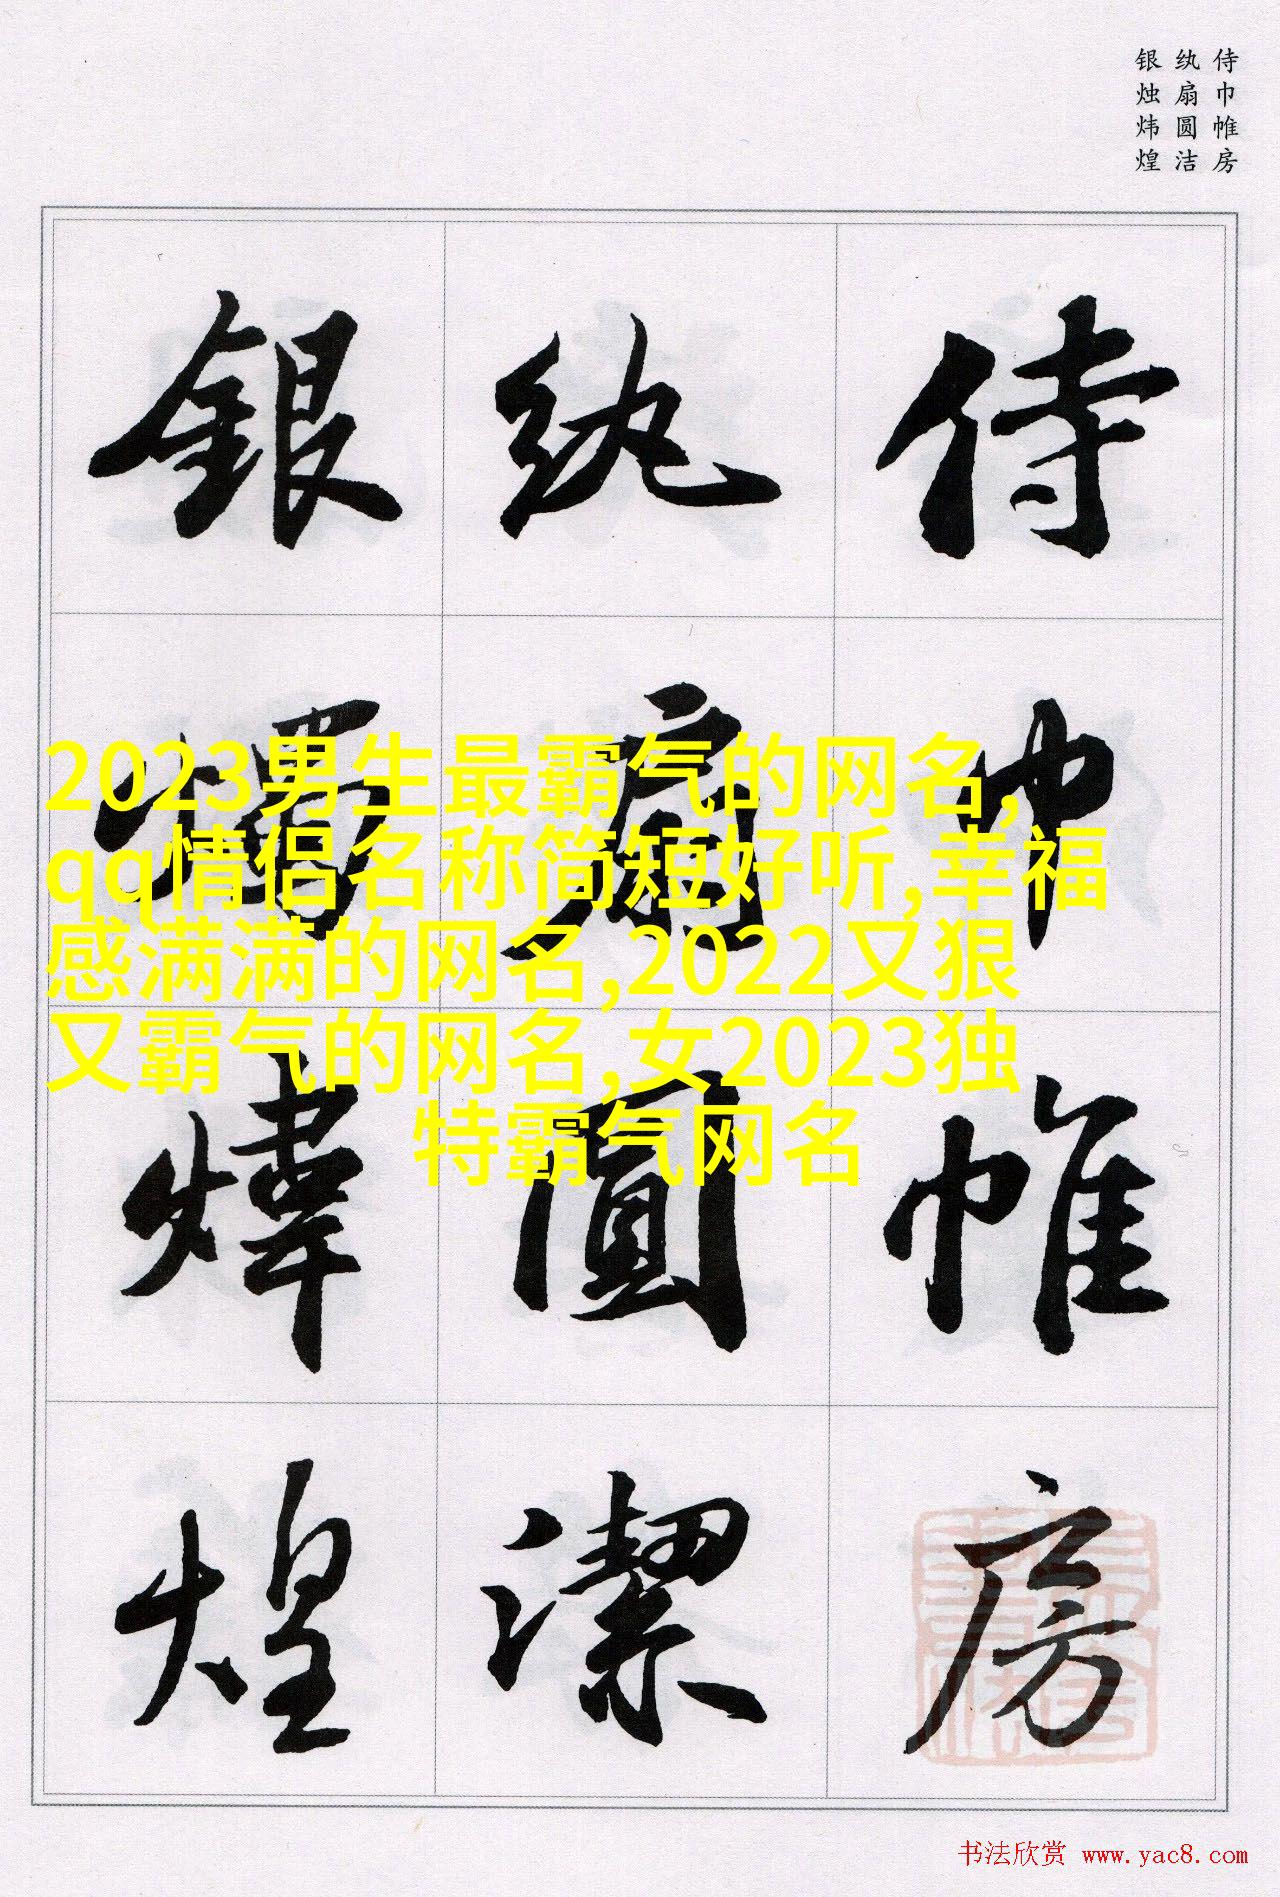 侍巾帷房
纨扇圆洁
银烛炜煌
侍巾帷房
纨扇圓潔
銀燭煒煌
2023男生最霸气的网名,
qq情侣名称简短好听,幸福
感满满的网名,2022又狠
又霸气的网名,女2023独
特霸气网名
书法欣赏 www.yac8.com